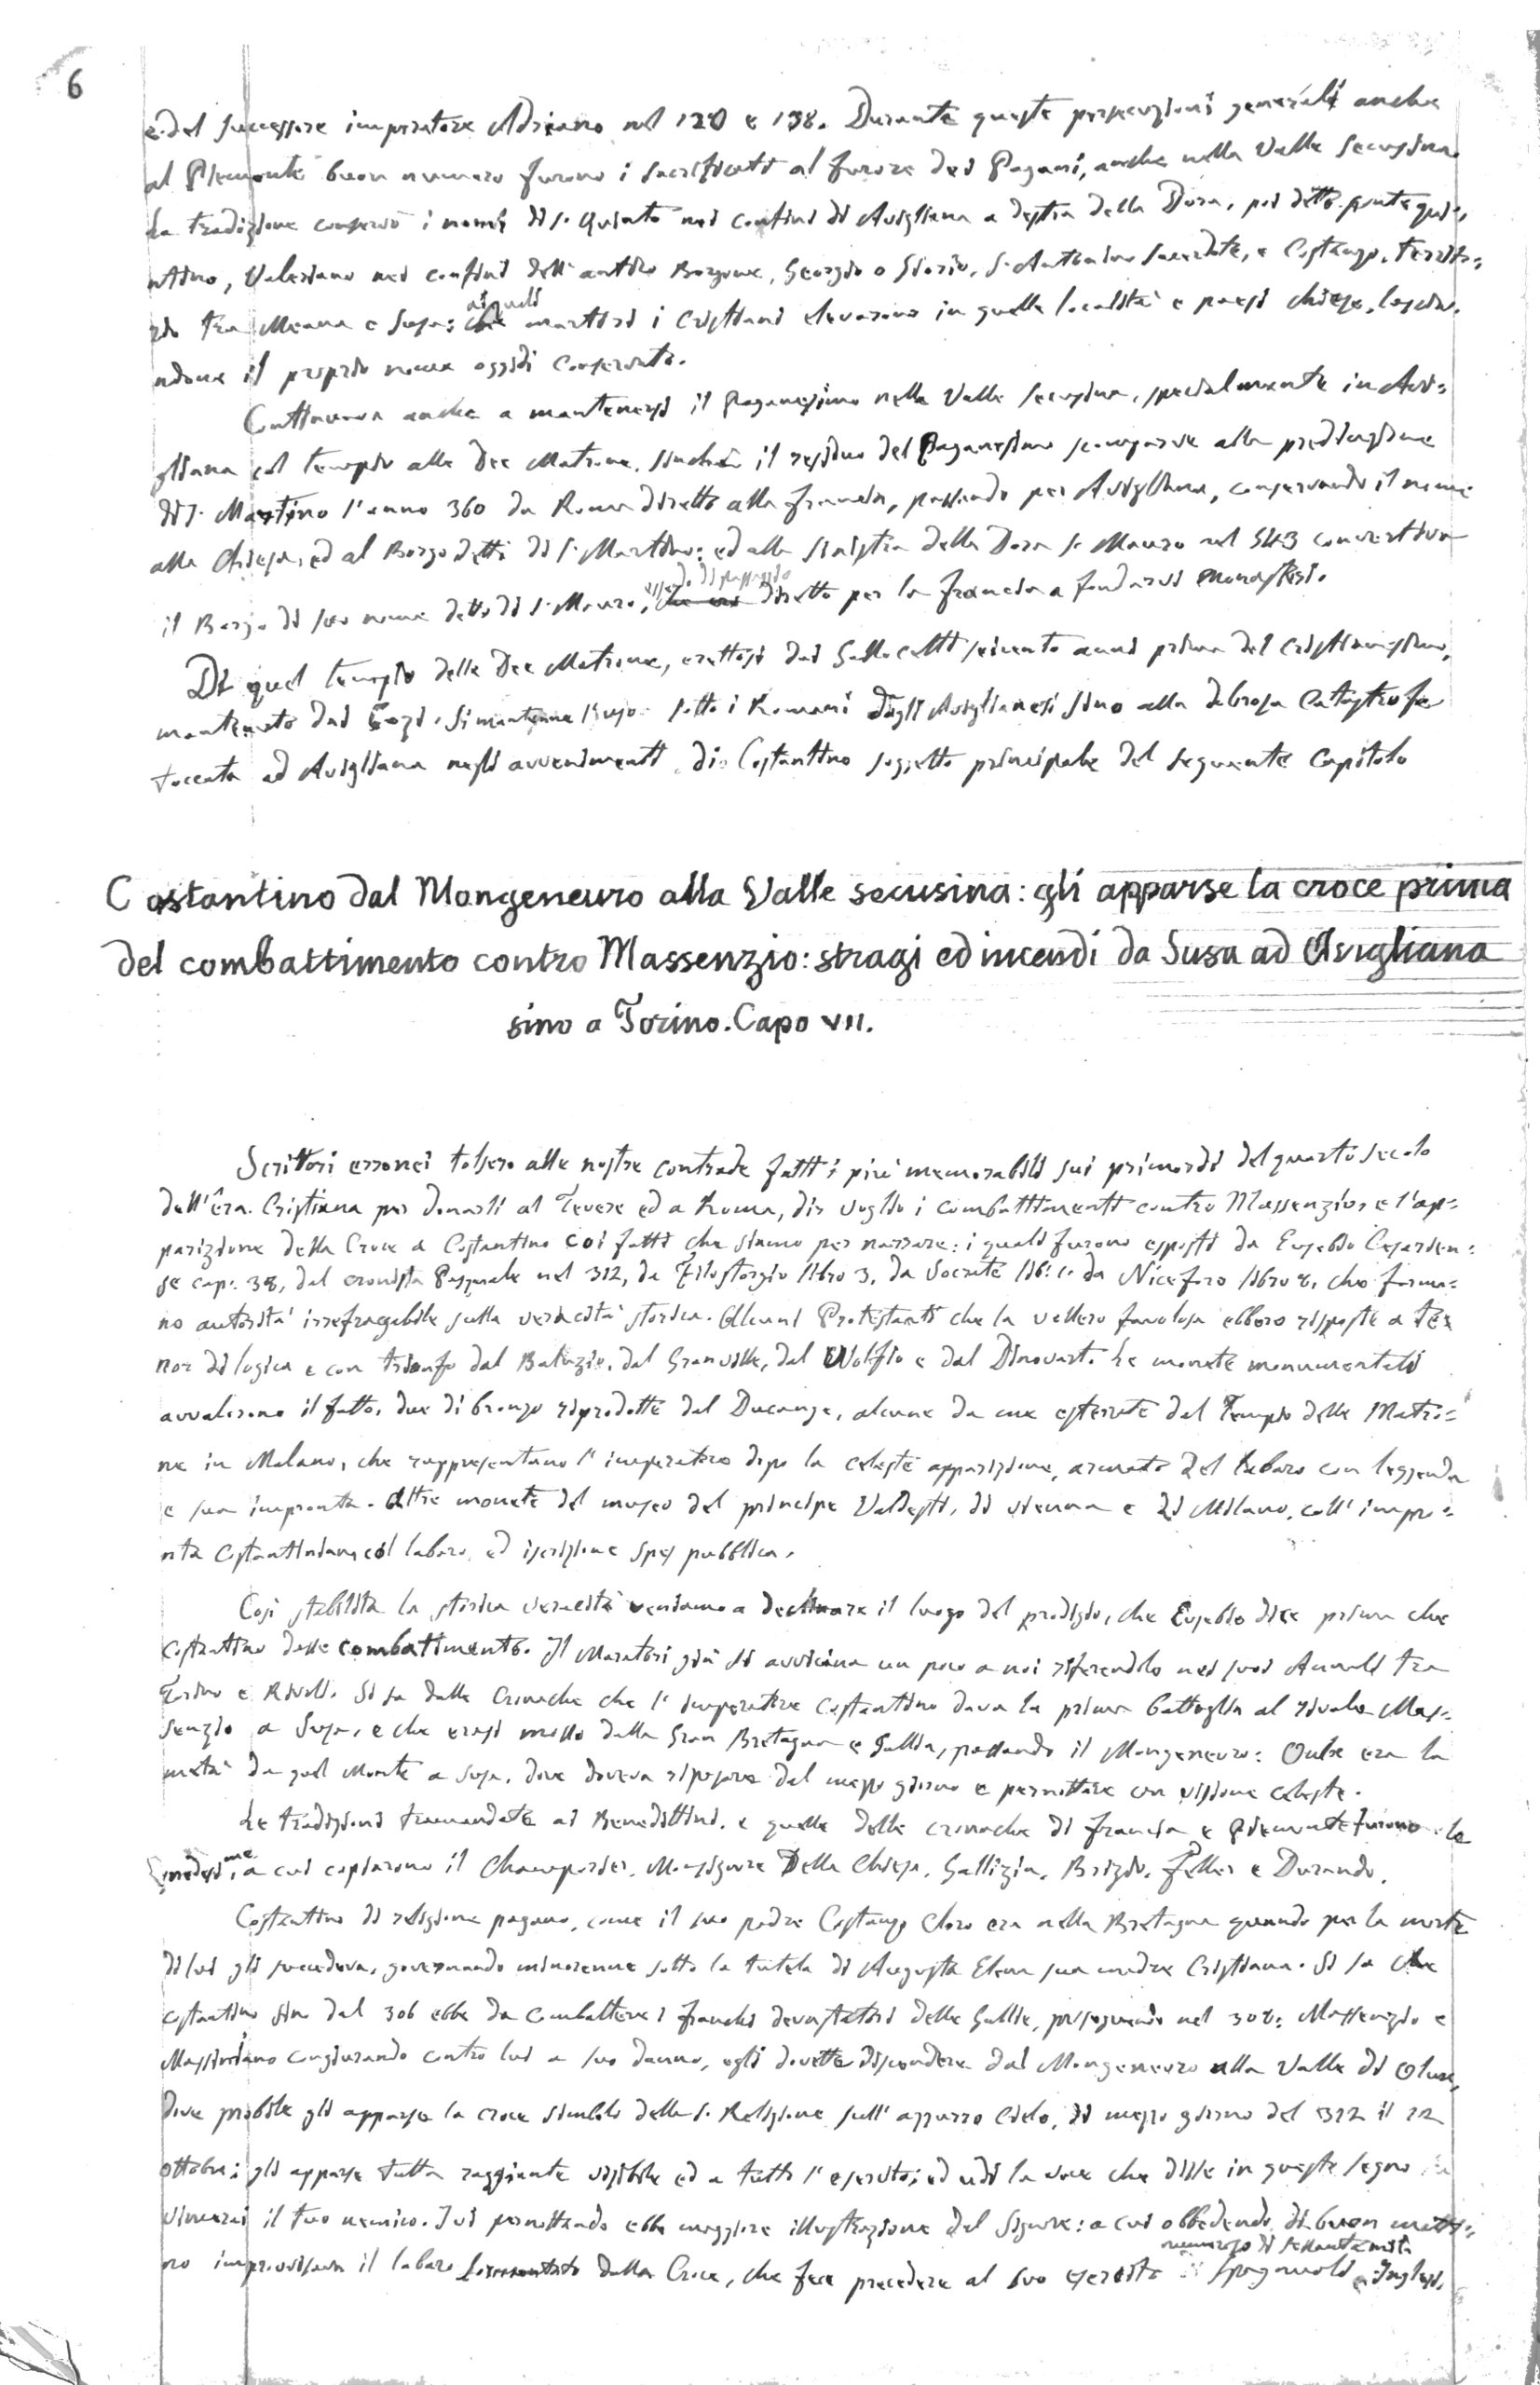 6
e del successore imperatore Adriano nel 120 e 138. Durante queste persecuzioni generali anche
al Piemonte buon numero furono i sacrificati al furore dei Pagani, anche nella Valle secusina.
La tradizione conservò i nomi di S. Quinto nei confini di Avigliana a destra della Dora, poi detto ponte qui=
ntino, Valeriano nei confini dell'antico Borgone, Georgio o Giorio, S. Antonino sacerdote, e Costanzo, territo=
rio tra Meana e Susa: ai quali martiri i Cristiani elevarono in quelle località e paesi chiese, lascia.
ndone il proprio nome oggidì conservato.
Continuava anche a mantenersi il Paganesimo nella Valle secusina, specialmente in Avi=
gliana col tempio alle Dee Matrone, sinchè il residuo del Paganesimo scomparve alla predicazione
di S. Martino l'anno 360 da Roma diretto alla francia, passando per Avigliana, conservando il nome
alla Chiesa, ed al Borgo detti di S. Martino: ed alla sinistra della Dora S. Mauro nel 543 convertiva
il Borgo di suo nome detto di S. Mauro, essendo di passaggio diretto per la francia a fondarvi Monasteri.
Di quel tempio delle Dee Matrone, erettosi dai Gallo celti seicento anni prima del cristianesimo,
mantenuto dai Cozi, si mantenne illeso sotto i Romani dagli Aviglianesi sino alla dolorosa catastrofe
toccata ad Avigliana negli avvenimenti di Costantino soggetto principale del seguente Capitolo
Costantino dal Mongenevro alla Valle secusina: gli apparse la croce prima
del combattimento contro Massenzio: stragi ed incendi da Susa ad Avigliana
sino a Torino. Capo VII.
Scrittori erronei tolsero alle nostre contrade fatti i più memorabili sui primordi del quarto secolo
dell'êra Cristiana per donarli al Tevere ed a Roma, dir voglio i combattimenti contro Massenzio, e l'ap=
parizione della Croce a Costantino coi fatti che siamo per narrare: i quali furono esposti da Eusebio Cesarien=
se cap: 38, dal cronista Pasquale nel 312, da Filostorgio libro 3, da Socrate lib: 1. da Niceforo libro 8, che forma=
no autorità irrefragabile sulla veracità storica. Alcuni Protestanti che la vollero favolosa ebbero risposte a te=
nor di logica e con trionfo dal Baluzio, dal Granville, dal Wolfio e dal Dinouart. Le monete monumentali
avvalorano il fatto, due di bronzo riprodotte dal Ducange, alcune da me esternate dal Tempio delle Matro=
ne in Malano, che rappresentano l'imperatore dopo la celeste apparizione, armato del labaro con leggenda
e sua impronta. Altre monete del museo del principe Valdesti, di vienna e di Milano, coll'impro=
nta costantiniana, col labaro, ed iscrizione spes pubblica.
Così stabilita la storica veracità veniamo a declinare il luogo del prodigio, che Eusebio dice prima che
Costantino desse combattimento. Il Muratori già si avvicina un poco a noi riferendolo nei suoi Annali tra
Torino e Rivoli. Si sa dalle Cronache che l'imperatore costantino dava la prima battaglia al rivale Mas=
senzio a Susa, e che erasi mosso dalla Gran Bretagna e Gallia, passando il Mongenevro: Oulx era la
metà da quel Monte a Susa, dove doveva riposare dal mezzo giorno e pernottare con visione celeste.
Le tradizioni tramandate ai Benedittini, e quelle delle cronache di francia e Piemonte furono le
medesime, a cui copiarono il Champorier, Monsignore Della Chiesa, Gallizia, Brizio, feller e Durando.
Costantino di religione pagano, come il suo padre Costanzo Cloro era nella Bretagna quando per la morte
di lui gli succedeva, governando minorenne sotto la tutela di Augusta Elena sua madre Cristiana. Si sa che
costantino sin dal 306 ebbe da combattere i franchi devastatori delle Gallie, proseguendo nel 308: Massenzio e
Massimiano congiurando contro lui a suo danno, egli dovette discendere dal Mongenevro alla Valle di Olux,
dove probile gli apparse la croce simbolo della S. Religione sull'azzurro cielo, di mezzo giorno del 312 il 22
ottobre; gli apparse tutta raggiante visibile ed a tutto l'esercito; ed udì la voce che disse in questo segno
vincerai il tuo nemico. Ivi pernottando ebbe maggiore illustrazione del Signore: a cui obbedendo di buon matti=
no improvisava il labaro sormontato dalla Croce, che fece precedere al suo esercito numeroso di sessanta mila Spagnuoli e Inglesi,